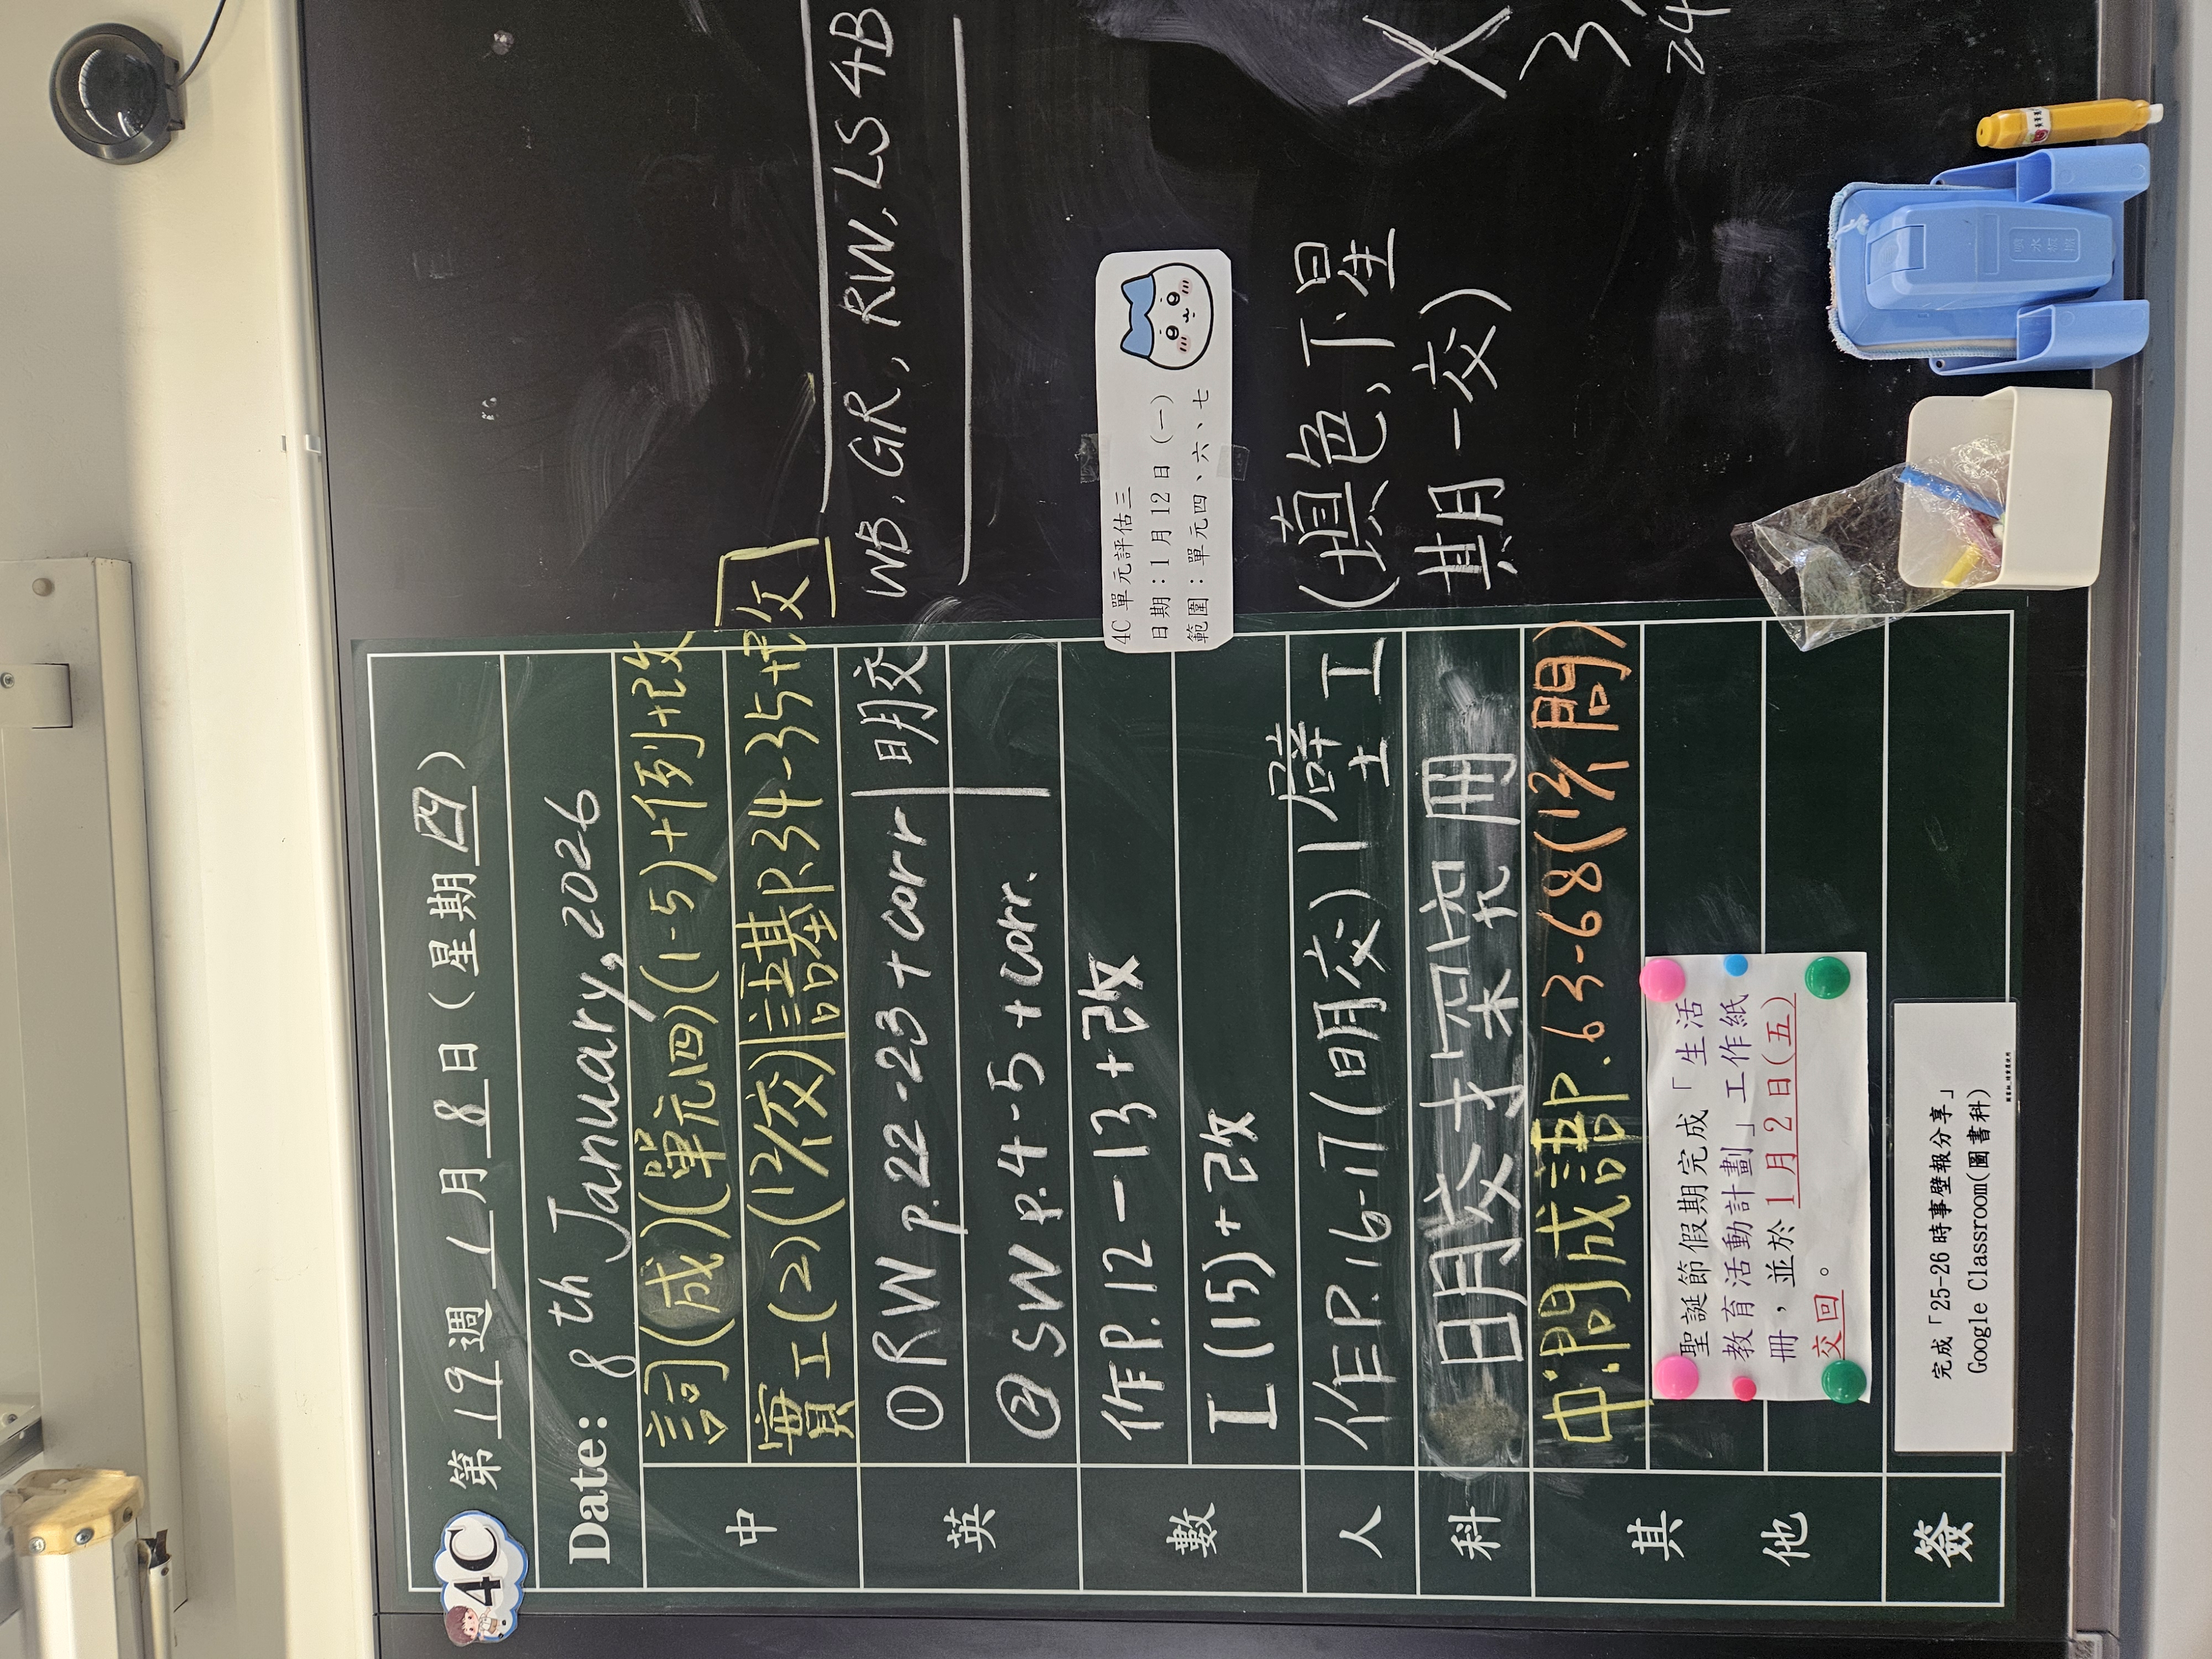 4C
第 19 週 1 月 8 日 (星期 四)
Date: 8th January, 2026
中
詞(成)(單元四)(1-5)+例+改
實工(2)(12/1交)|語基P.34-35+改
英
①RW p.22-23 + corr | 明交
WB, GR, RW, LS 4B
②SW p.4-5 + corr.
數
作P.12-13+改
工(15)+改
4C 單元評估三
日期:1月12日(一)
範圍:單元四、六、七
人
作P.16-17(明交)|壁土工
(填色,下星
期一交)
科
明交才架构冊
其他
中.門成語P.63-68(13/1問)
聖誕節假期完成「生活
教育活動計劃」工作紙
冊,並於1月2日(五)
交回。
簽
完成「25-26時事壁報分享」
Google Classroom(圖書科)
X
3
24